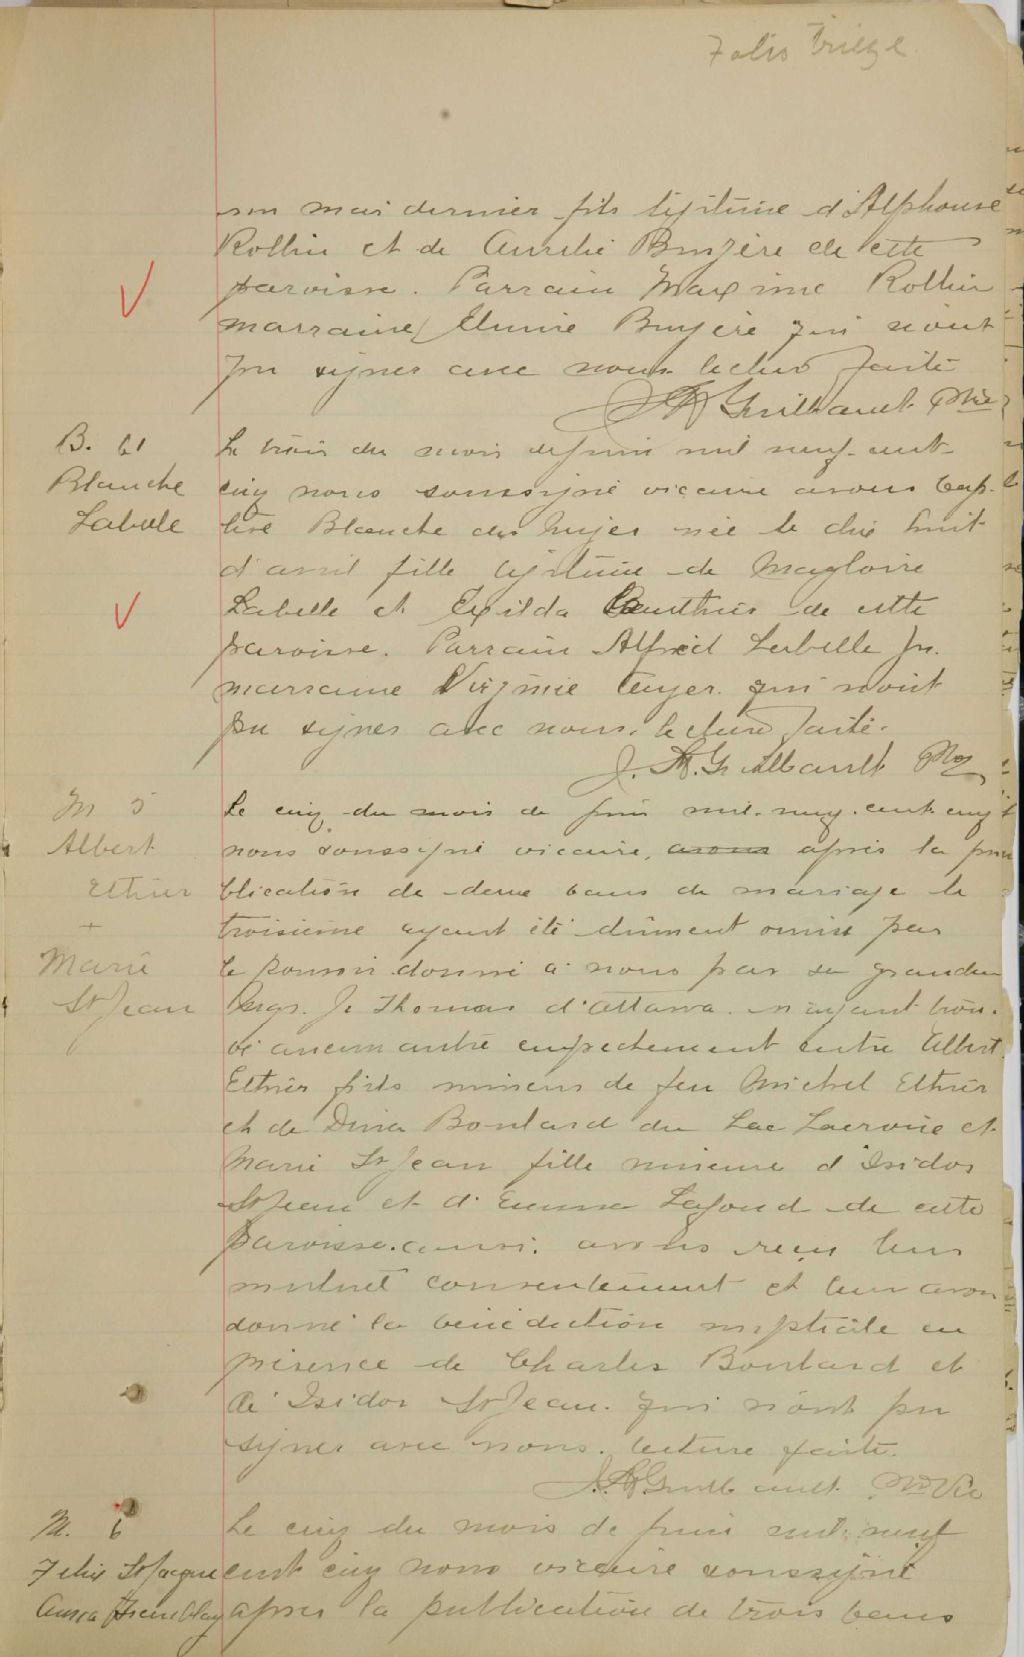 Folio Treize
mai dernier fils légitime d'Alphonse
Rollin et de Aurelie Bruyère de cette
paroisse. Parrain Maxime Rollin
marraine Bruyère qui n'ont
pu signer avec nous. lecture faite
J A Guilbault Ptre
B. 61
Blanche
Labelle
Le trois du mois de juin mil neuf cent
cinq nous soussigné vicaire avons bap-
tisé Blanche née le dix huit
d'avril fille légitime de Magloire
Labelle et Exilda Gauthier de cette
paroisse. Parrain Alfred Labelle jr.
marraine Virginie qui n'ont
pu signer avec nous. lecture faite.
J. A. Guilbault Ptre
M 5
Albert
Ethier
+
Marie
St Jean
Le cinq du mois de juin mil neuf cent cinq
nous soussigné vicaire, avons après la pu
blication de deux bans de mariage le
troisième ayant été dûment omis par
le pouvoir donné à nous par sa grandeur
Mgr. J. Thomas d'Ottawa. n'ayant trou-
vé aucun autre empechement entre Albert
Ethier fils mineur de feu Michel Ethier
et de Dina Boulard du Lac Lacroix et
Marie St Jean fille mineure d'Isidor
St Jean et d'Emma Lafond de cette
paroisse aussi. avons reçu leur
mutuel consentement et leur avons
donné la bénédiction nuptiale en
présence de Charles Boulard et
de Isidor St Jean. qui n'ont pu
signer avec nous. lecture faite.
J. A. Guilbault. Ptre Vic
M. 6
Felix St Jacques
Aurea Tremblay
Le cinq du mois de juin mil neuf
cent cinq nous vicaire soussigné
après la publication de trois bans